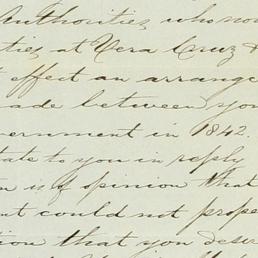 Authorities who now
ties at Vera Cruz &
effect an arrange
ade between you
ernment in 1842.
tate to you in reply
n is of opinion that
nt could not prope
tion that you desir